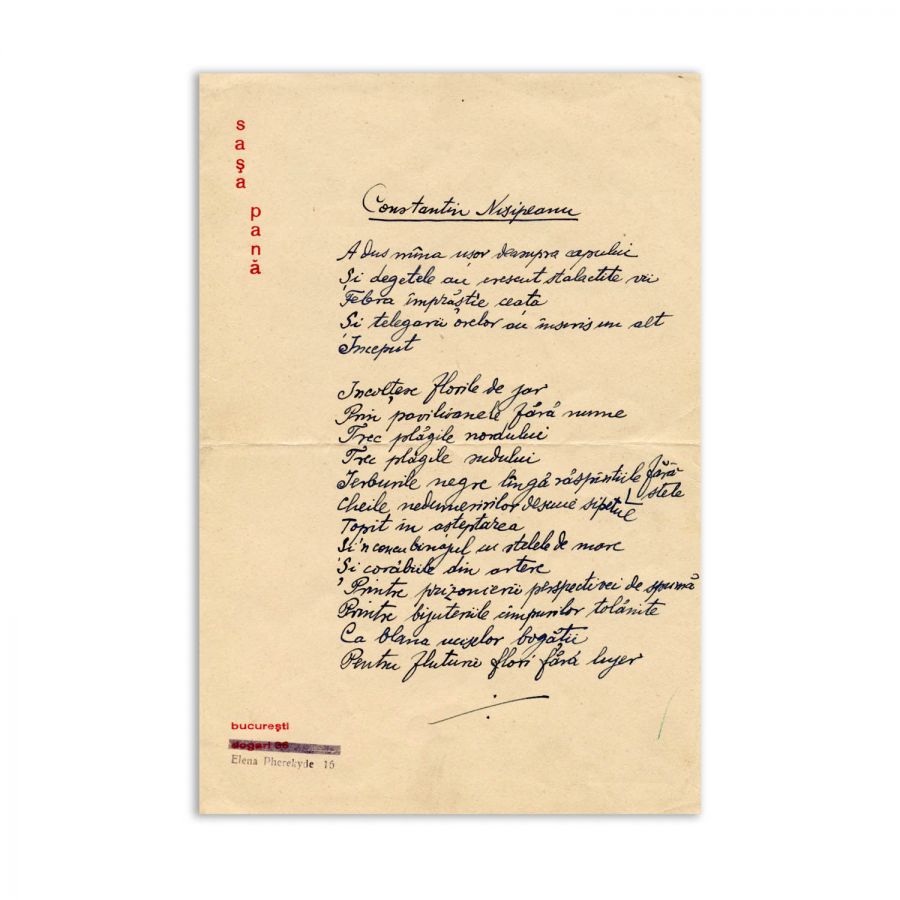 saşa
pană
Constantin Nisipeanu
A dus mîna uşor deasupra capului
Şi degetele au crescut stalactite vii
Febra împrăştie ceaţa
Şi telegarii orelor au înscris un alt
Început
Încolţesc florile de jar
Prin pavilioanele fără nume
Trec plăgile nordului
Trec plăgile sudului
Ierburile negre lîngă răspîntiile fără
stele
Cheile nedumeririlor descuie sipetul
Topit în aşteptarea
Şi'n concubinajul cu stelele de mare
Şi corăbiile din artere
Printre prizonierii perspectivei de spumă
Printre bijuteriile timpurilor tolănite
Ca blana uciselor bogăţii
Pentru fluturii flori fără lujer
bucureşti
dogari 36
Elena Pherekyde 16